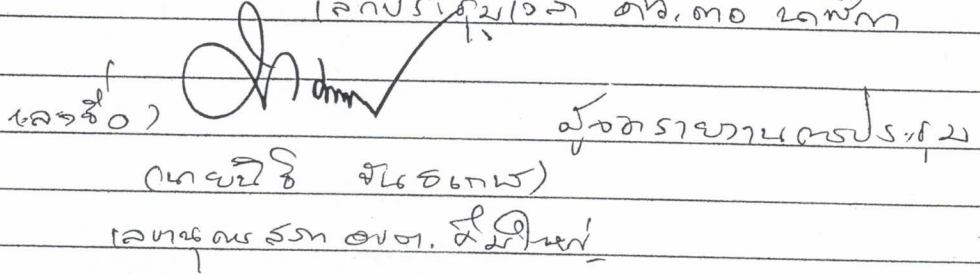 เลิกประชุมเวลา ๑๖.๓๐ นาฬิกา
(ลงชื่อ) ผู้จดรายงานการประชุม
(นายนิธิ จันธเกษ)
เลขานุการสภา อบต.